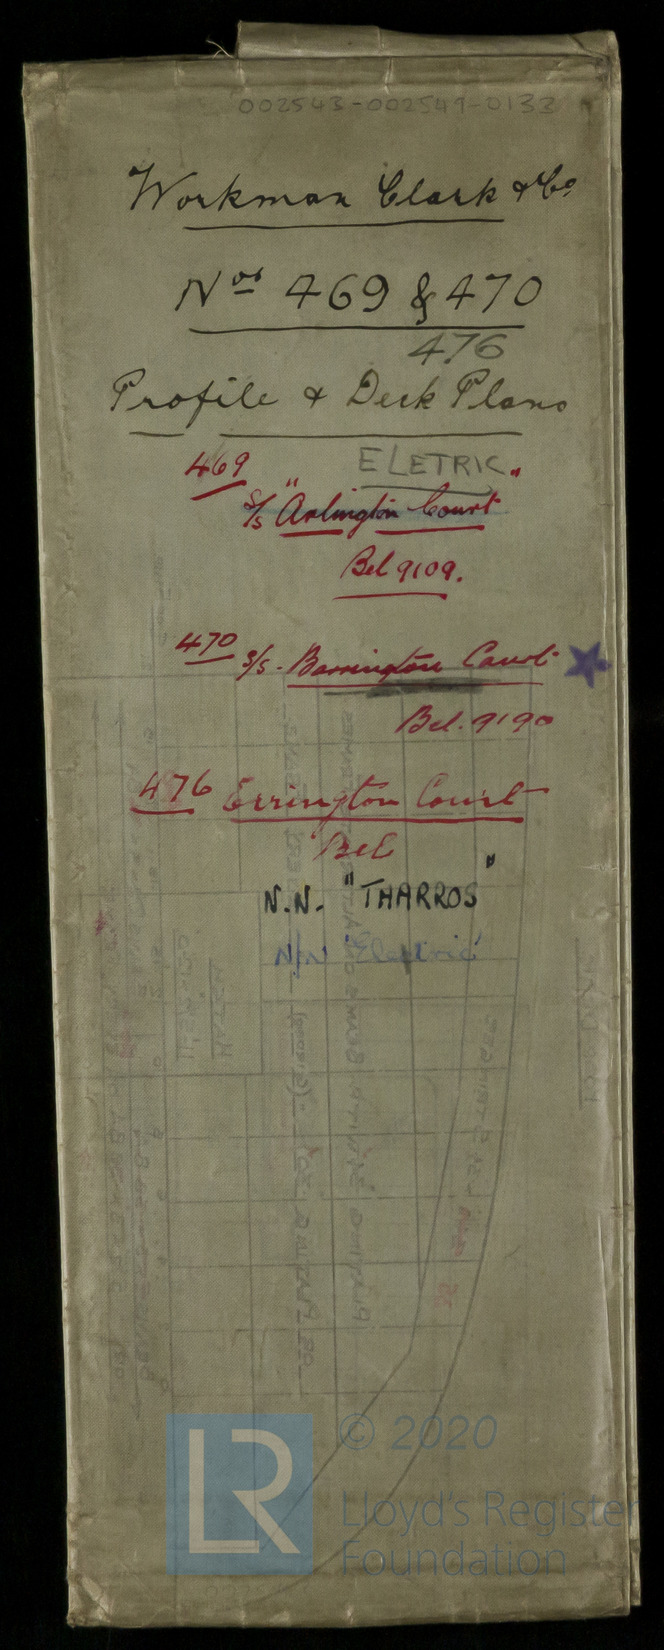 002543-002549-0133
Workman Clark & Co
Nos 469 & 470
476
Profile & Deck Plans
469 ELETRIC
S/S "Arlington Court"
Bel 9109.
470 S/S. Barrington Court
Bel. 9190
476 Errington Court
Bel
N.N. "THARROS"
N/N "Electric"
LR
© 2020
Lloyd's Register
Foundation